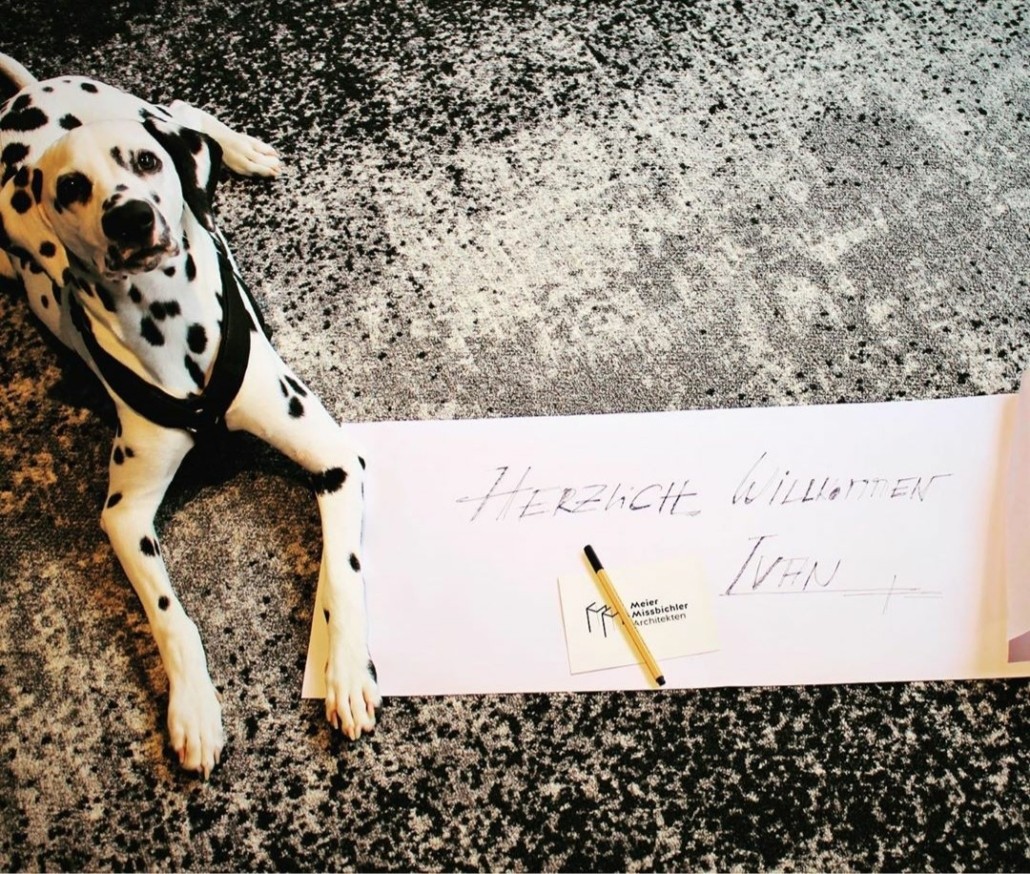 HERZLICH WILLKOMMEN
IVAN
Meier
Missbichler
Architekten